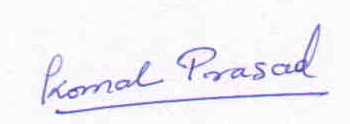 Komal Prasad